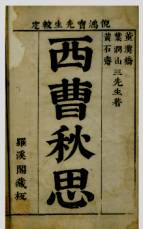 倪鴻寶先生較定
黃石齋
葉潤山三先生著
董漢橋
西曹秋思
羅溪閣藏板